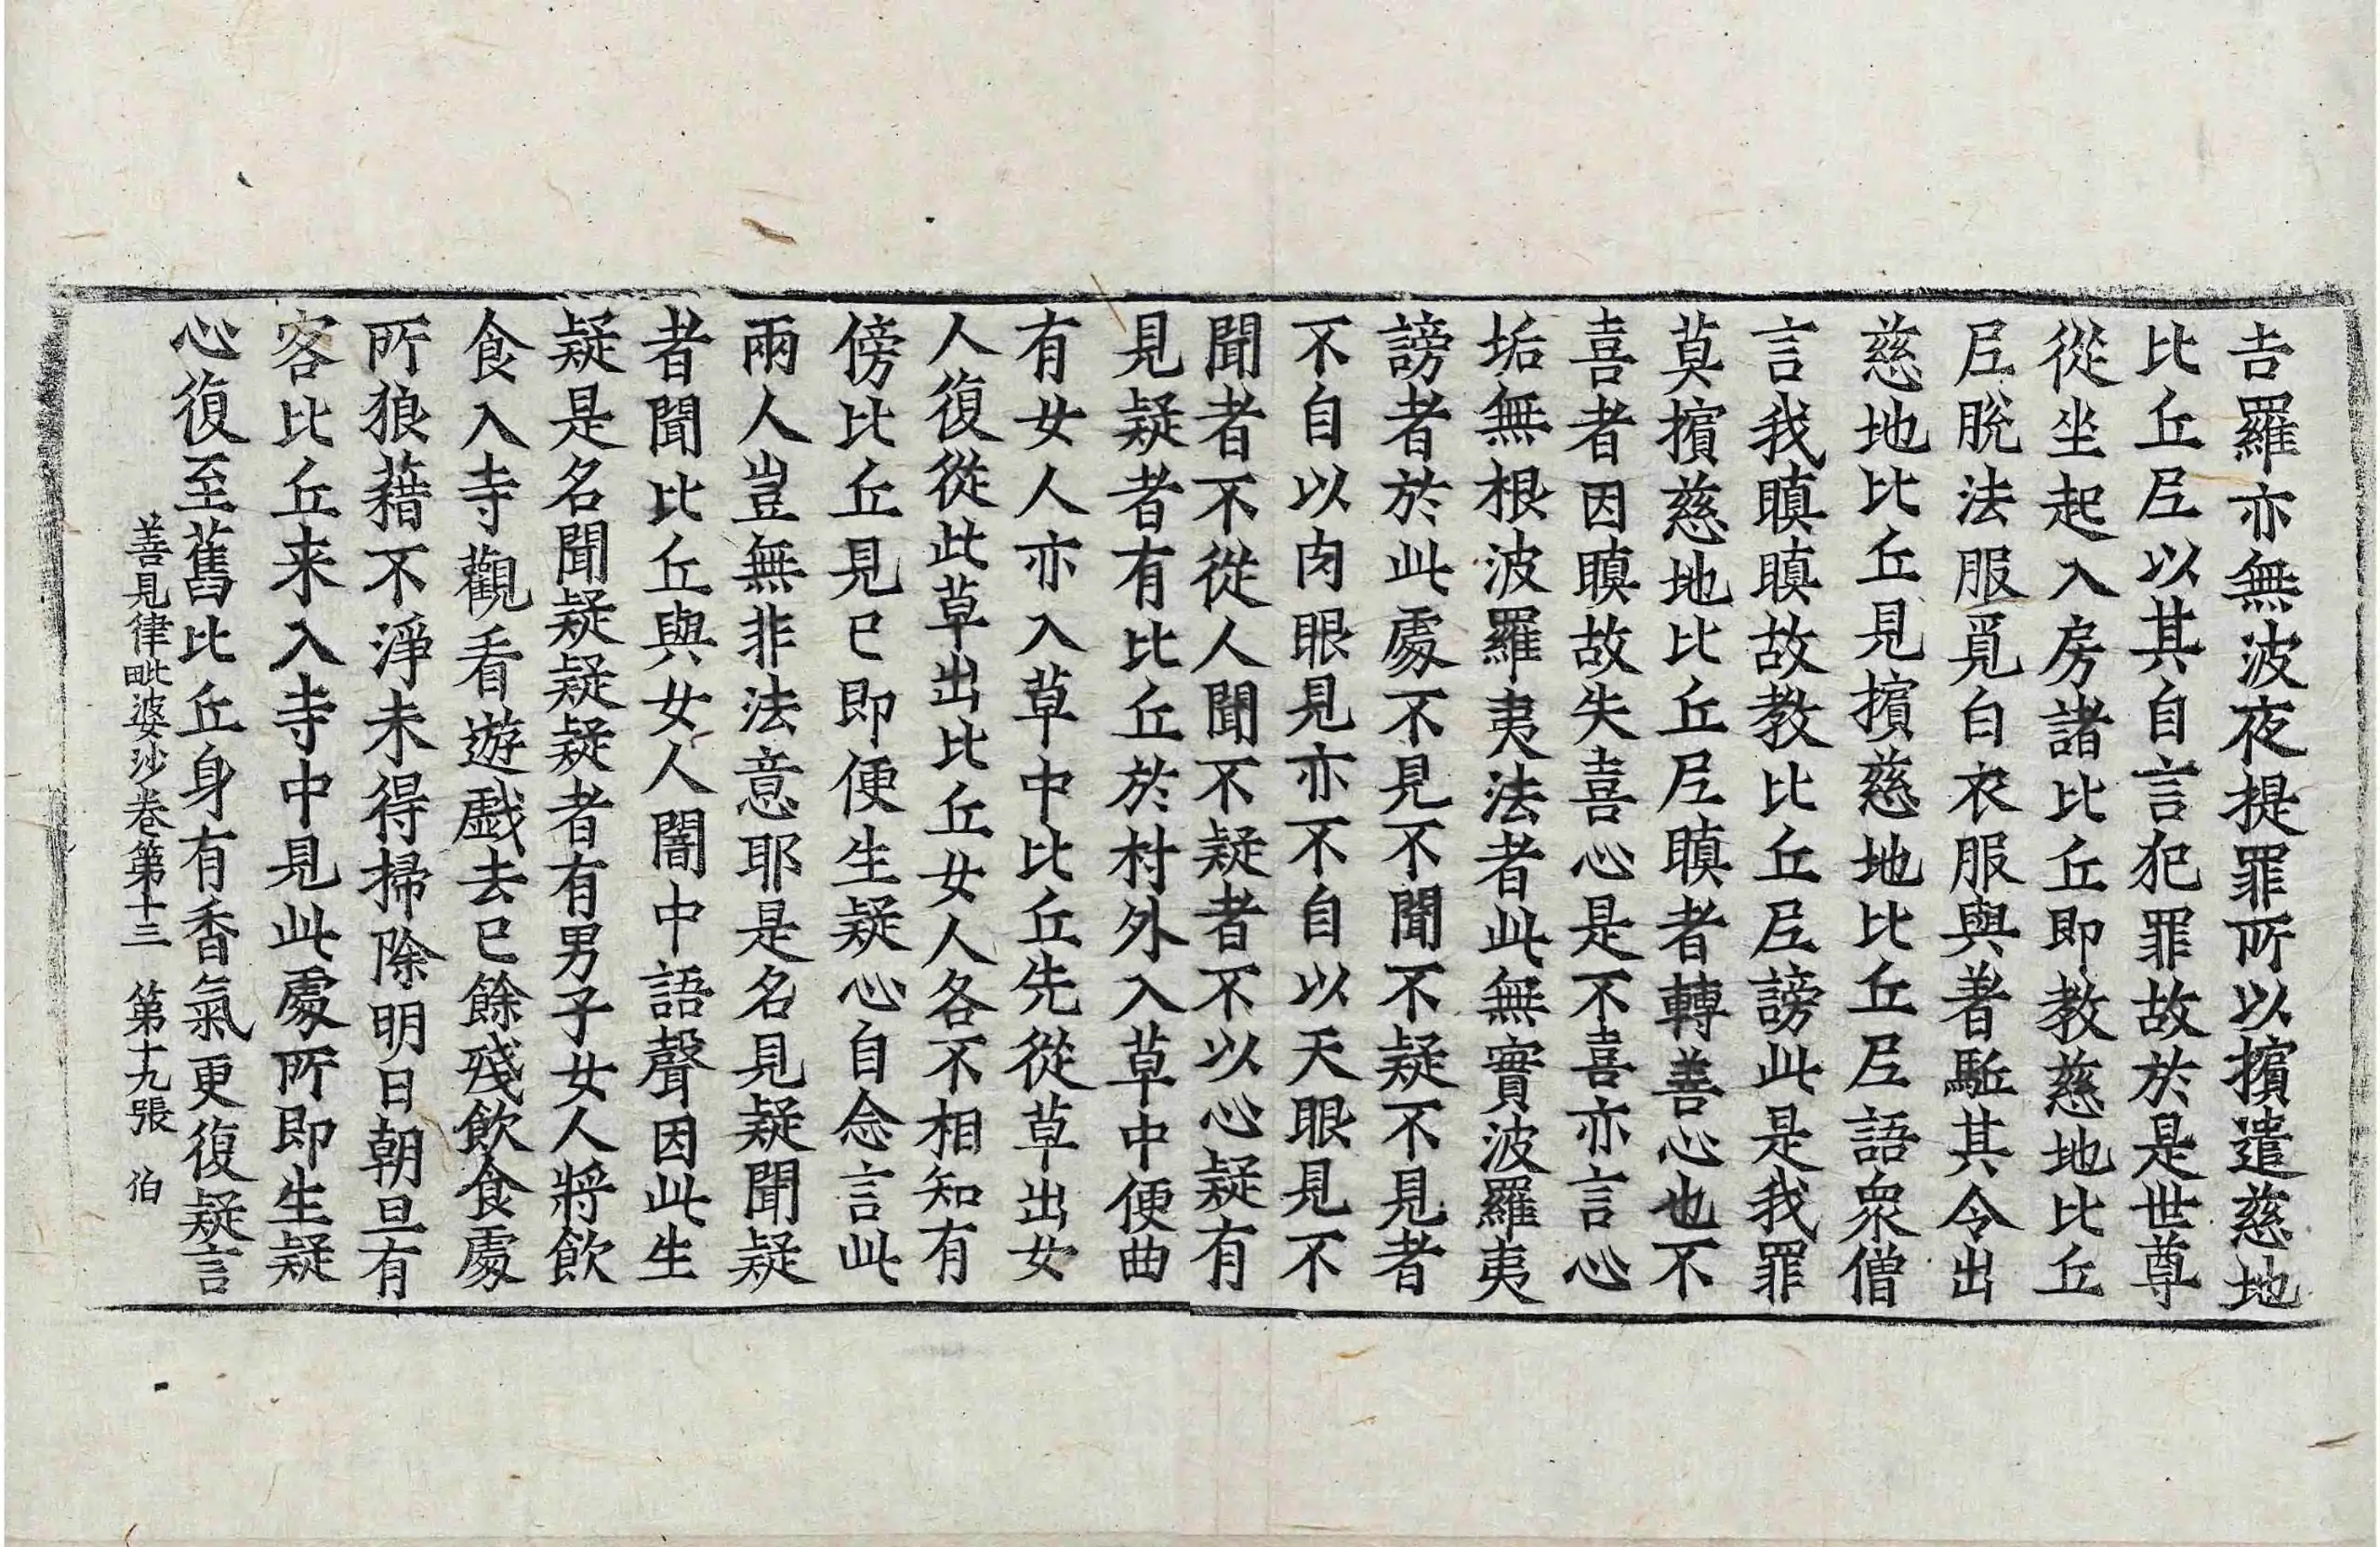 吉羅亦無波夜提罪所以擯遣慈地
比丘𡰱以其自言犯罪故於是世尊
從坐起入房諸比丘即教慈地比丘
𡰱脫法服覓白衣服與著駈其令出
慈地比丘見擯慈地比丘𡰱語衆僧
言我瞋瞋故教比丘𡰱謗此是我罪
莫擯慈地比丘𡰱瞋者轉善心也不
喜者因瞋故失喜心是不喜亦言心
垢無根波羅夷法者此無實波羅夷
謗者於此處不見不聞不疑不見者
不自以肉眼見亦不自以天眼見不
聞者不從人聞不疑者不以心疑有
見疑者有比丘於村外入草中便曲
有女人亦入草中比丘先從草出女
人復從此草出比丘女人各不相知有
傍比丘見已即便生疑心自念言此
兩人豈無非法意耶是名見疑聞疑
者聞比丘與女人闇中語聲因此生
疑是名聞疑疑疑者有男子女人將飲
食入寺觀看遊戲去已餘殘飲食處
所狼藉不淨未得掃除明日朝旦有
客比丘来入寺中見此處所即生疑
心復至舊比丘身有香氣更復疑言
善見律毗婆沙卷第十三　第十九張　伯